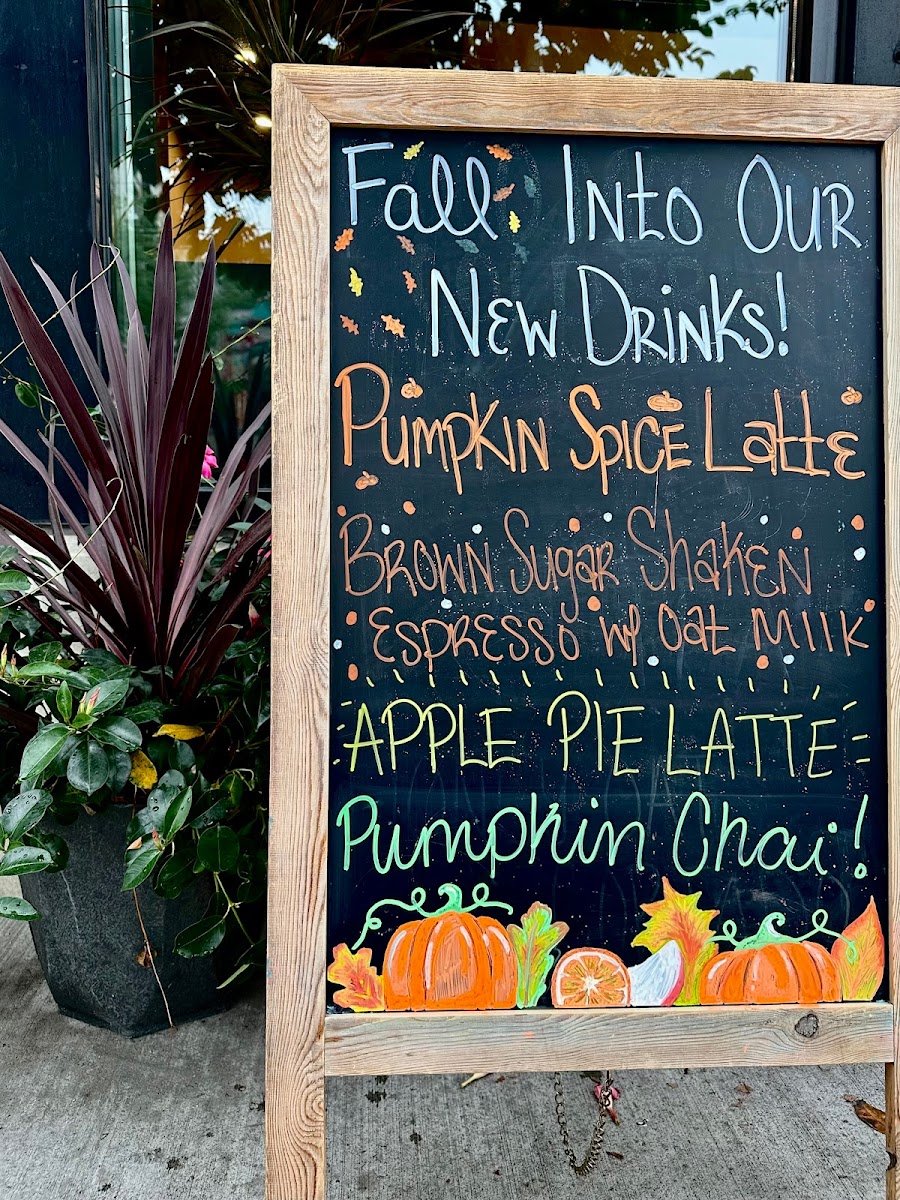 Fall Into Our
New Drinks!
Pumpkin Spice Latte
Brown Sugar Shaken
Espresso w/ Oat Milk
APPLE PIE LATTE
Pumpkin Chai!